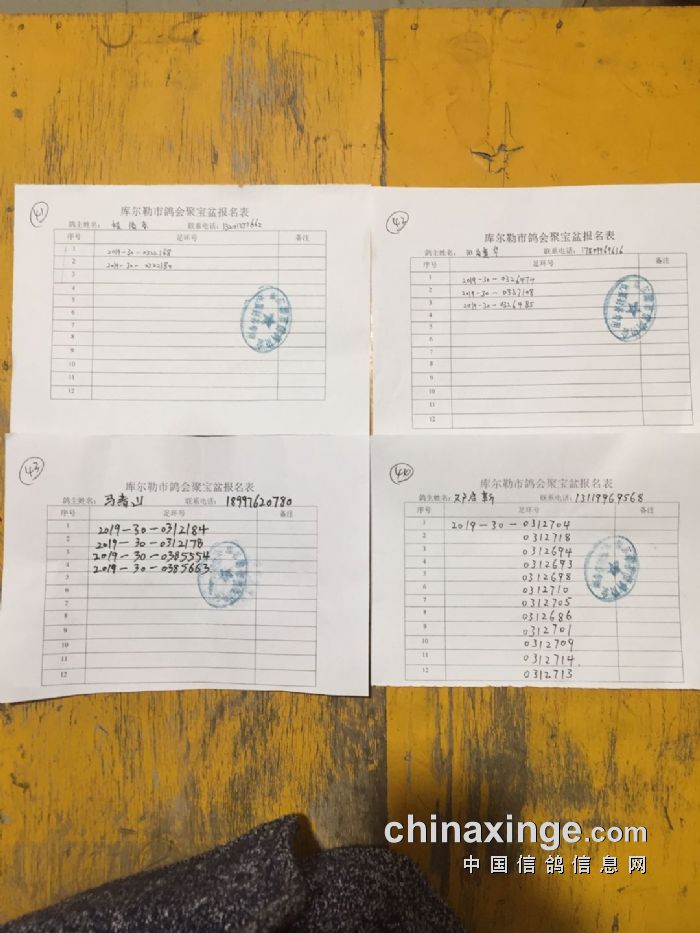 41
库尔勒市鸽会聚宝盆报名表
鸽主姓名: 联系电话: 13201371662
序号 足环号 备注
1 2019-30-0322168
2 2019-30-0322180
3
4
5
6
7
8
9
10
11
12
42
库尔勒市鸽会聚宝盆报名表
鸽主姓名: 联系电话: 17809969616
序号 足环号 备注
1 2019-30-0326474
2 2019-30-0337108
3 2019-30-0326485
4
5
6
7
8
9
10
11
12
43
库尔勒市鸽会聚宝盆报名表
鸽主姓名: 马春山 联系电话: 18997620780
序号 足环号 备注
1 2019-30-0312184
2 2019-30-0312178
3 2019-30-0385554
4 2019-30-0385663
5
6
7
8
9
10
11
12
库尔勒市鸽会聚宝盆报名表
鸽主姓名: 联系电话: 13119969568
序号 足环号 备注
1 2019-30-0312704
2 0312718
3 0312694
4 0312693
5 0312698
6 0312710
7 0312705
8 0312686
9 0312701
10 0312709
11 0312714
12 0312713
chinaxinge.com
中国信鸽信息网